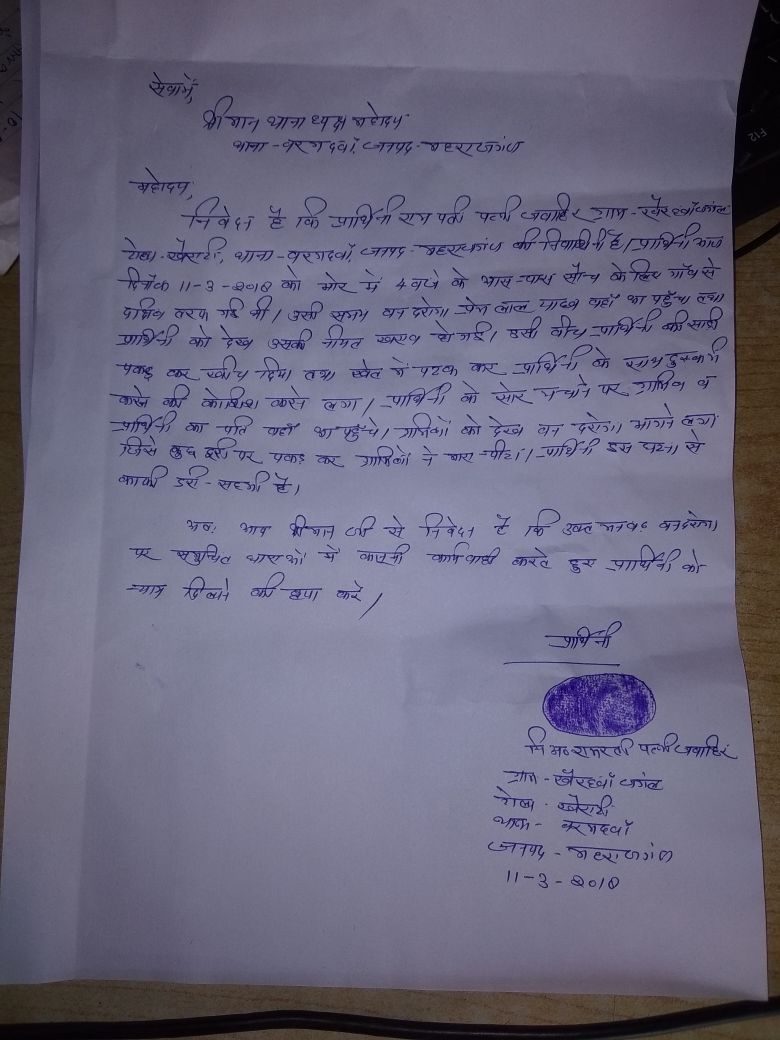 सेवामें,
श्रीमान थानाध्यक्ष महोदय
थाना - बरगदवाँ, जनपद - महराजगंज
महोदय,
निवेदन है कि प्रार्थिनी राम पत्नी जवाहिर ग्राम - खैरहवाँ जंगल
टोला - खैराटी, थाना - बरगदवाँ, जनपद - महराजगंज की निवासिनी है। प्रार्थिनी आज
दिनाँक 11-3-2018 को भोर में 4 बजे के आस-पास सौच के लिए गाँव से
दक्षिण तरफ गई थी। उसी समय वन दरोगा प्रेम लाल यादव वहाँ आ पहुँचा तथा
प्रार्थिनी को देख उसकी नीयत खराब हो गई। इसी बीच प्रार्थिनी की साडी
पकड़ कर खींच दिया तथा खेत में पटक कर प्रार्थिनी के साथ दुष्कर्म
करने की कोशिश करने लगा। प्रार्थिनी को सोर मचाने पर ग्रामिण व
प्रार्थिनी का पति वहाँ आ पहुँचे। ग्रामिणों को देख वन दरोगा भागने लगा
जिसे कुछ दूरी पर पकड़ कर ग्रामिणों ने मारा-पीटा। प्रार्थिनी इस घटना से
काफी डरी-सहमी है।
अतः आप श्रीमान जी से निवेदन है कि उक्त वनदरोगा
पर समुचित धाराओं में कानूनी कार्यवाही करते हुए प्रार्थिनी को
न्याय दिलाने की कृपा करें।
प्रार्थिनी
पत्नी जवाहिर
ग्राम - खैरहवाँ जंगल
टोला - खैराटी
थाना - बरगदवाँ
जनपद - महराजगंज
11-3-2018
F12